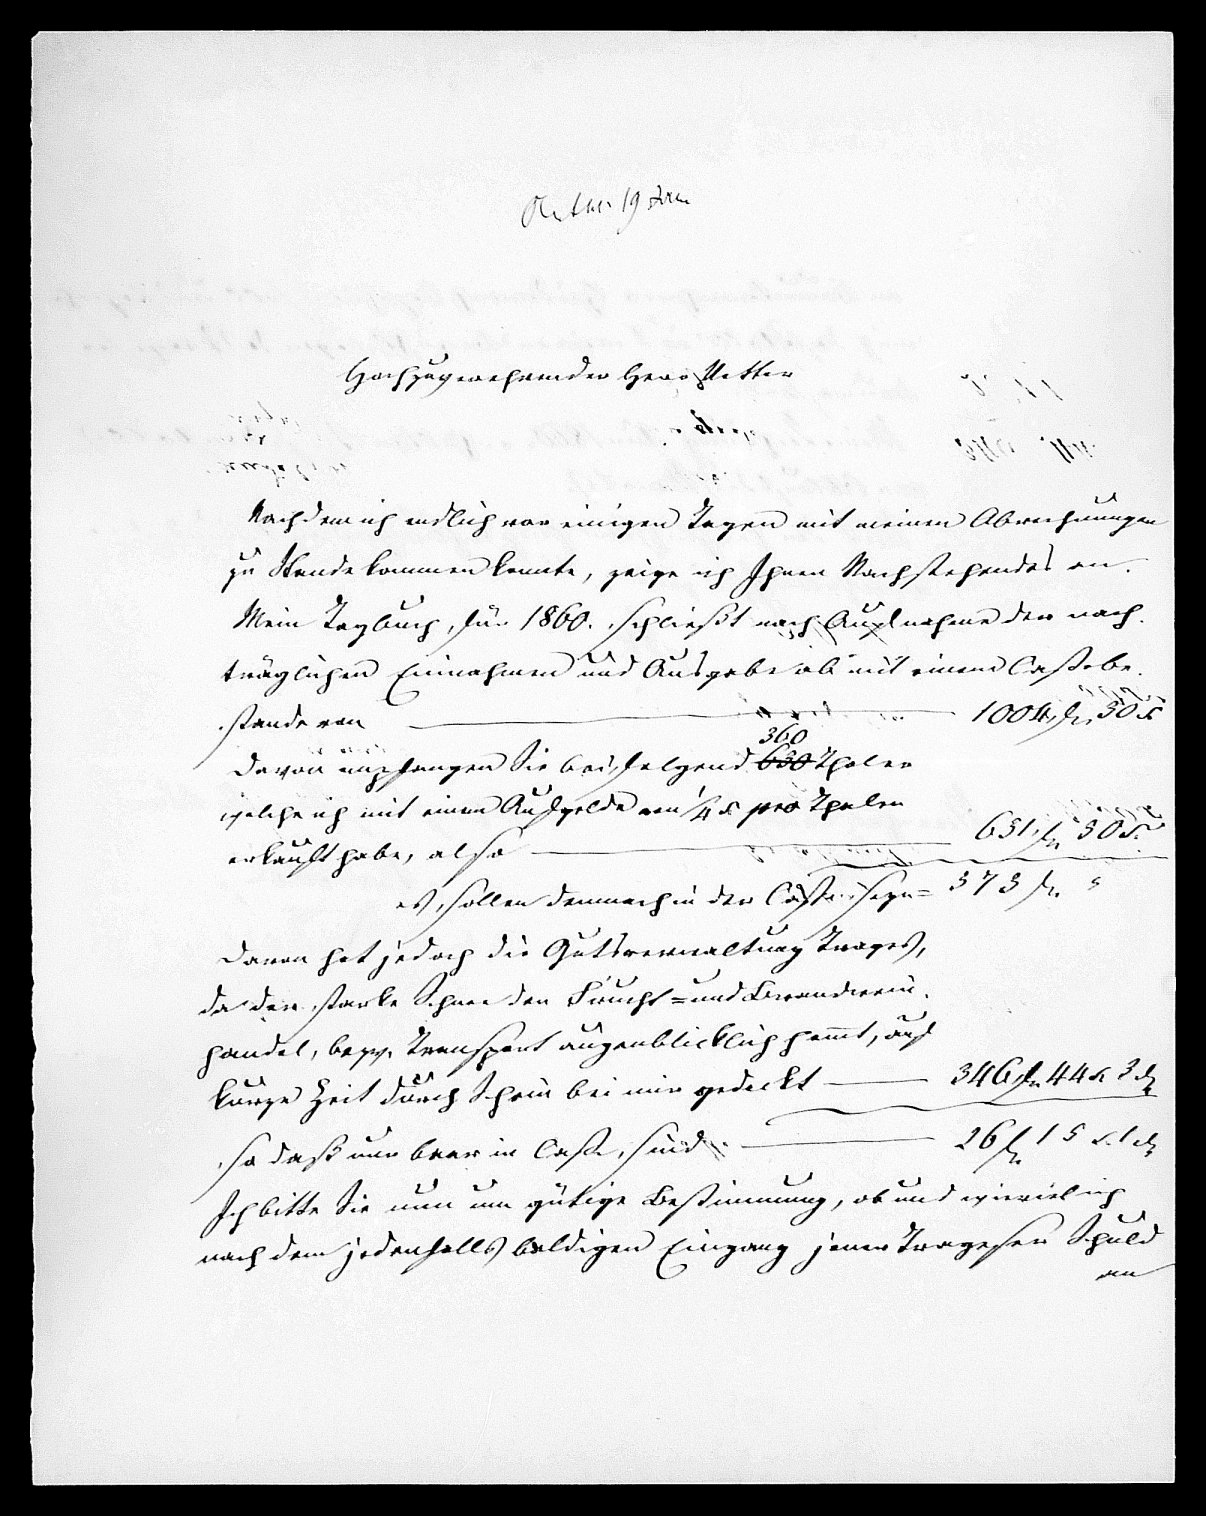 Hochzuverehrender Herr Vetter
Nachdem ich endlich vor einigen Tagen mit meinen Abrechnungen
zu Stande kommen konnte, zeige ich Ihnen Nachstehendes an.
Mein Tagbuch, für 1860. schließt nach Aufnahme der nach
träglichen Einnahmen und Ausgabe ab mit einem Cassebe.
stande von 1004 fl. 50 x
360
Davon empfangen Sie beifolgend 630 Thaler
welche ich mit einem Aufgelde von 1/4 x pro Thaler
erkauft habe, also 631 fl 30 x.
es sollen demnach in der Casse seyn = 373 fl.
Davon hat jedoch die Gutsverwaltung Trages,
da der starke Schnee den Frucht = und Brandwein.
handel, bezw. Transport augenblicklich hemmt, auf
kurze Zeit durch Schein bei mir gedeckt 346 fl 44 x 3 d
so daß nun baar in Casse sind 26 fl 15 x. 1 d
Ich bitte Sie nun um gütige Bestimmung, ob und wieviel ich
nach dem jedenfalls baldigen Eingang jener Trageser Schuld
an